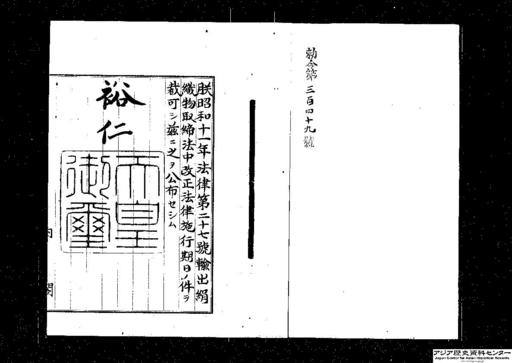 勅令第三百四十九號
朕昭和十一年法律第二十七號輸出絹
織物取締法中改正法律施行期日ノ件ヲ
裁可シ玆ニ之ヲ公布セシム
裕仁
天皇
御璽
内
閣
アジア歴史資料センター
Japan Center for Asian Historical Records